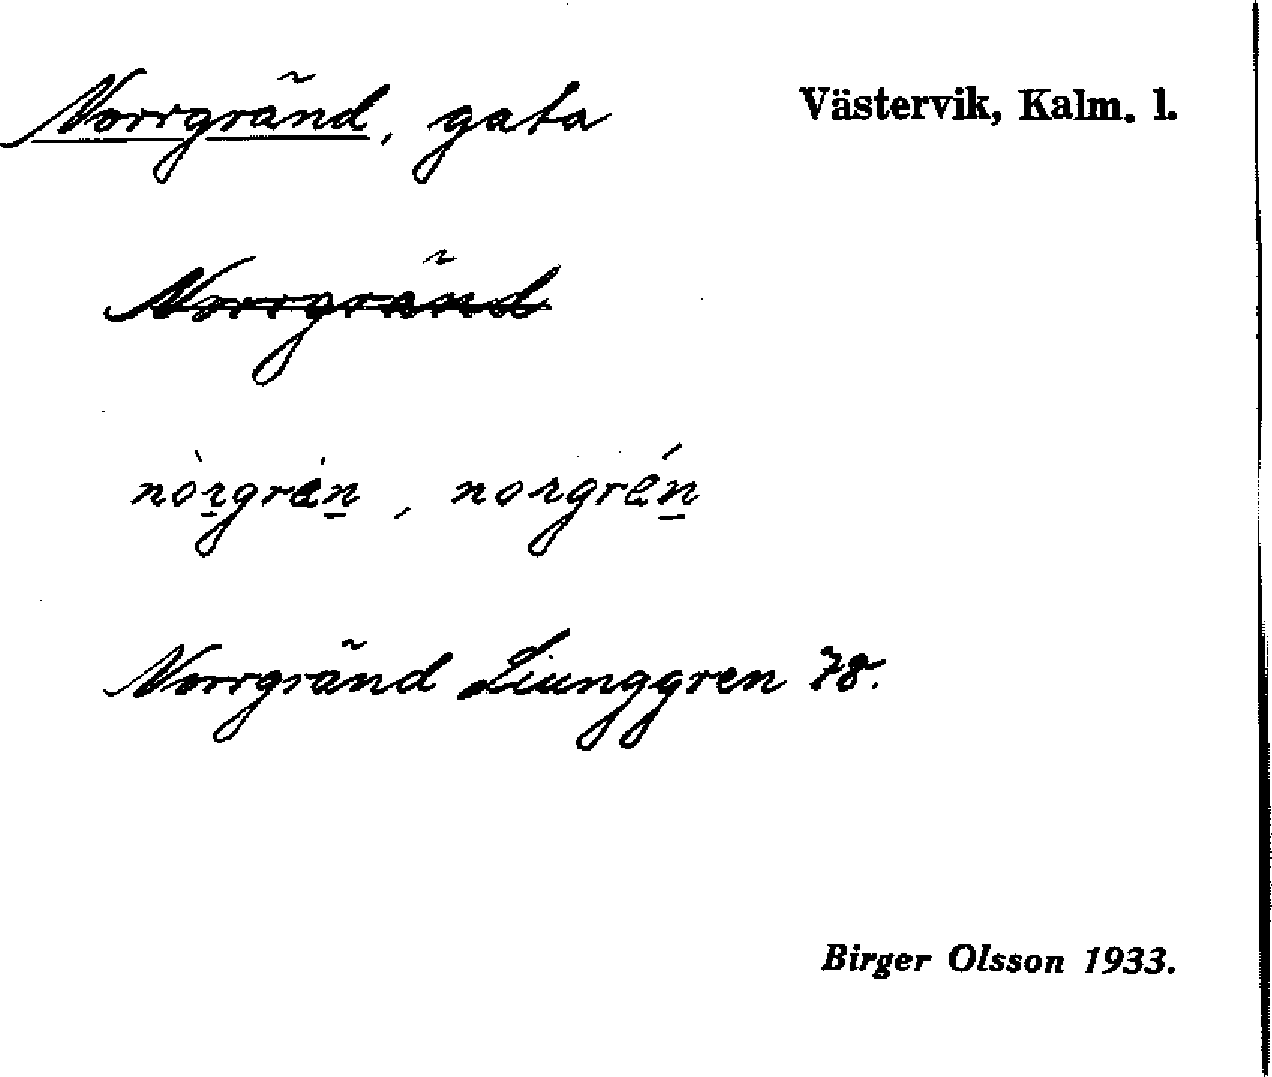 Norrgränd, gata Västervik, Kalm. l.
Norrgränd
nòrgrèn, norgrén
Norrgränd Liunggren 78.
Birger Olsson 1933.